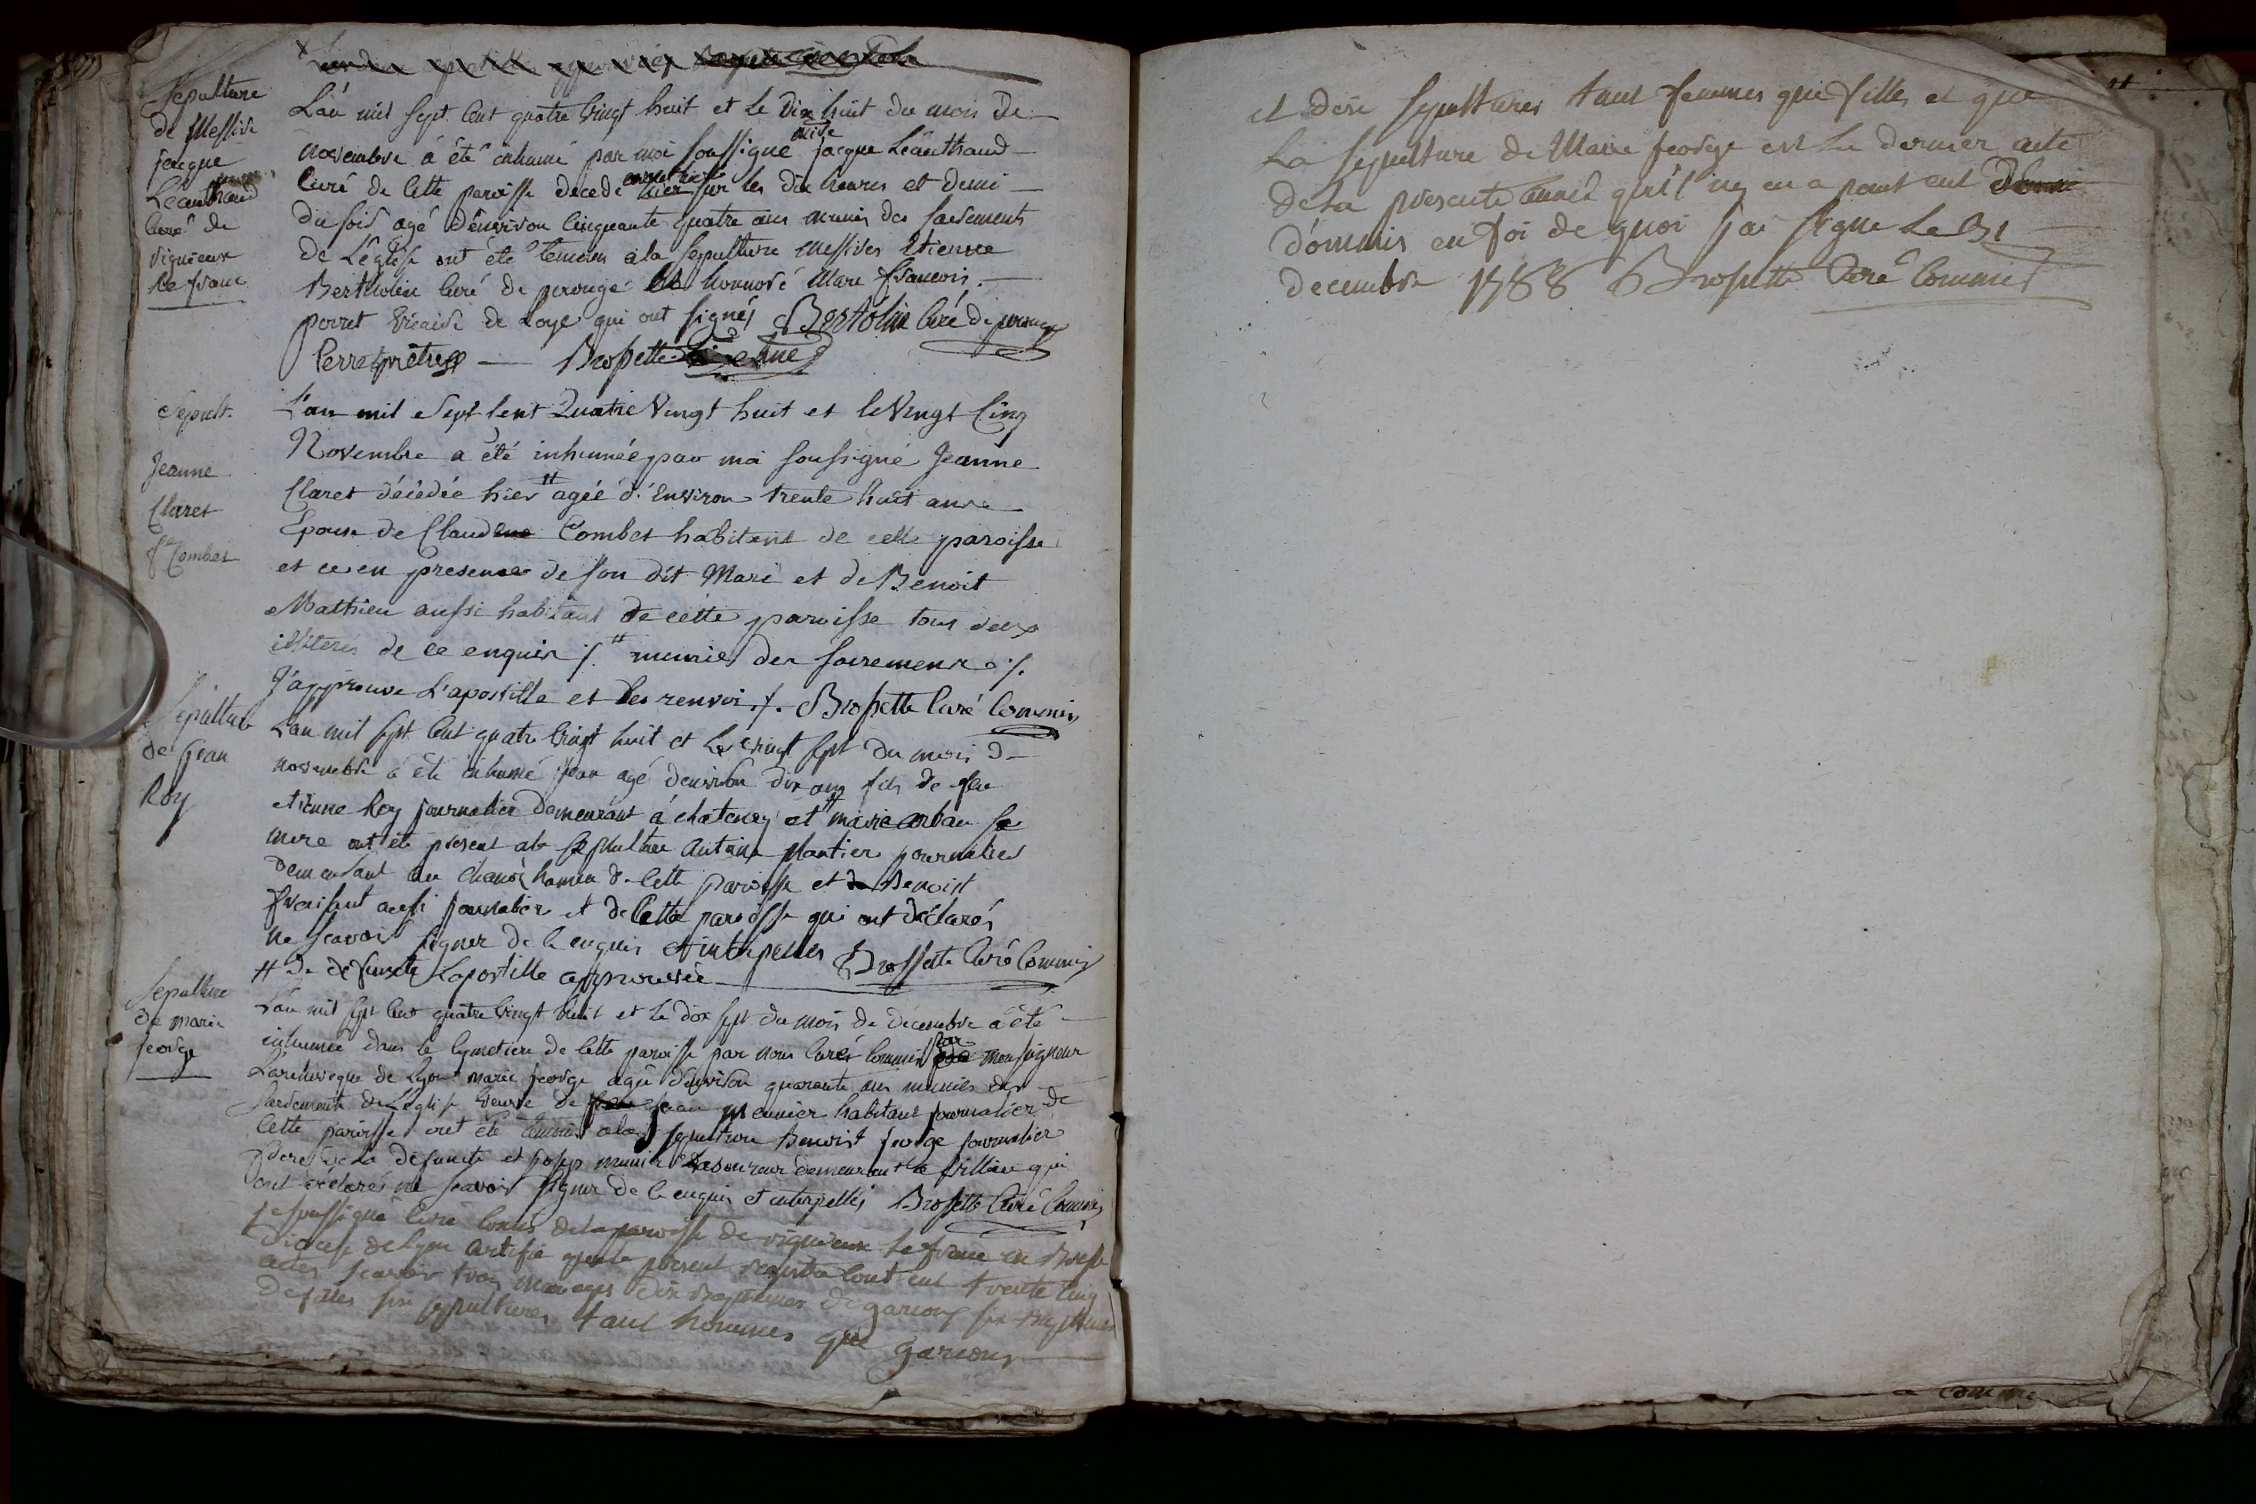 Sepulture
de Messire
jacque
Léauthaud
curé de
vigneieux
le franc
L'an mil sept cent quatre vingt huit et le dix huit du mois de
novembre a été inhumé par moi soussigné mire jacque Léauthaud
curé de cette paroisse decedé avant hier sur les dix heures et demi
du soir agé d'environ cinquante quatre ans munis des sacrements
de L'église ont été temoin a la sepulture messires Etienne
Bertholin curé de perouge honnoré Marc françois
porret vicaire de Loye qui ont signés Bertolin curé de perouge
Perret prêtre Brossette
Sepult.
Jeanne
Claret
fe Combet
L'an mil Sept cent Quatre Vingt huit et le Vingt Cinq
Novembre a été inhumée par moi soussigné Jeanne
Claret décédée hier # agée d'environ trente huit ans
Epouse de Claude Combet habitant de cette paroisse
et ce en presence de son dit Mari et de Benoit
Mathieu aussi habitant de cette paroisse tous deux
illiterés de ce enquis /. # munie des sacremens ./.
J'approuve L'apostille et les renvoi ./. Brossette Curé Commis
Sepulture
de jean
Roy
L'an mil sept cent quatre vingt huit et le vingt sept du mois de
novembre a été inhumé jean agé denviron dix ans fils de feu
etienne Roy journalier demeurant a chatenay et # marie orban sa
mere ont été présent a la sepulture antoine plantier journalier
demeurant au hameu de cette paroisse et de Benoist
aussi journalier et de cette paroisse qui ont déclarés
ne scavoir signer de ce enquis et interpellés Brossette Curé Commis
# de defuncte Lapostille approuvée
Sepulture
de marie
george
L'an mil sept cent quatre vingt huit et le dix sept du mois de decembre a été
inhumée dans le cymetiere de cette paroisse par nous curés commis par monseigneur
L'archeveque de Lyon marie george agée d'environ quarante ans munies des
sacrements de L'eglise veuve de jean meunier habitant journalier de
cette paroisse ont été temoins a la sepulture benoist george journalier
frere de la defuncte et demeurant a qui
ont déclarés ne scavoir signer de ce enquis et interpellés Brossette Curé Commis
je soussigné curé commis de la paroisse de vigneieux le franc en Bresse
diocese de Lyon certifie que le présent registre contient trente cinq
actes scavoir trois mariages dix baptemes de garçons six baptemes
de filles six sepultures tant hommes que garçons
et dix sepultures tant femmes que filles et que
La sepulture de Marie george est le dernier acte
de la presente année qu'il n'y en a point eut
d'ommis en foi de quoi j'ai signe Le 31
decembre 1788 Brossette Curé Commis